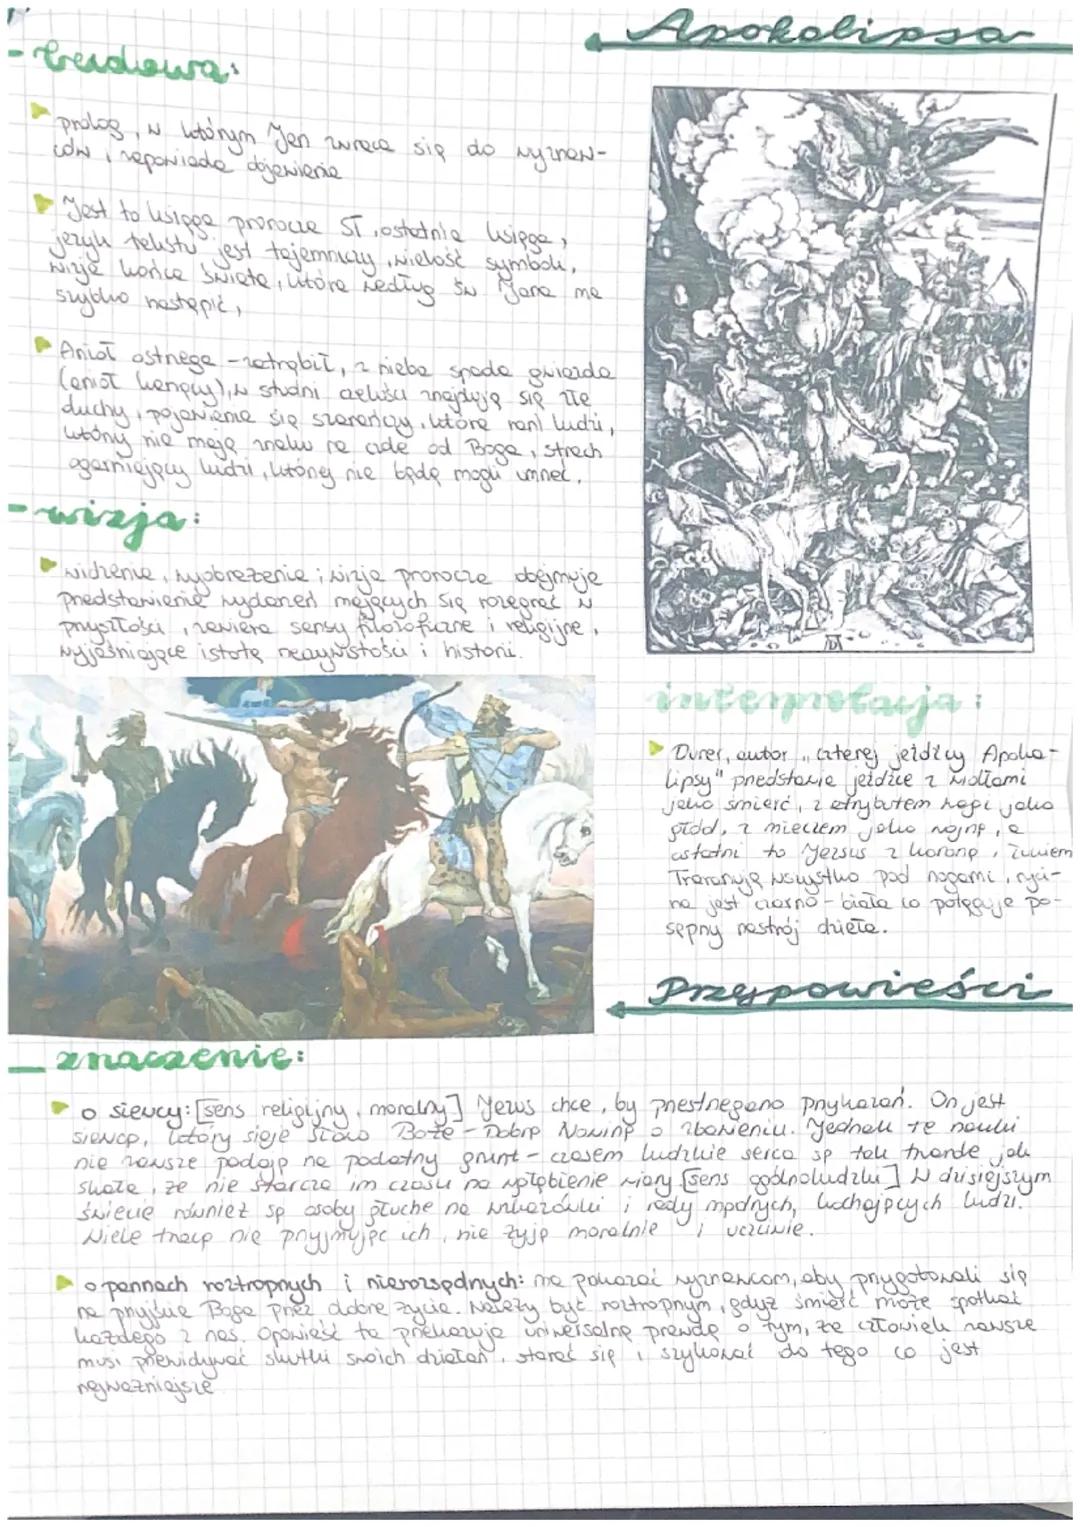 Apokalipsa
- budowa:
prolog, w którym Jan zwraca się do wyznaw-
ców i zapowiada objawienie
Jest to księga prorocza ST, ostatnia księga,
język tekstu jest tajemniczy, wielość symboli,
wizja końca świata, która według św Jana ma
szybko nastąpić,
Anioł ostrzega - zatrąbił, z nieba spada gwiazda
(anioł karzący), w studni czeluści znajdują się złe
duchy, pojawienie się szarańczy, która rani ludzi,
którzy nie mają znaku na czole od Boga, strach
ogarniający ludzi, którzy nie będą mogli umrzeć.
- wizja:
widzenie, wyobrażenie; wizja prorocza obejmuje
przedstawienie wydarzeń mających się rozegrać w
przyszłości, zawiera sensy filozoficzne i religijne,
wyjaśniające istotę rzeczywistości i historii.
interpretacja:
Durer, autor "czterej jeźdźcy Apoka-
lipsy" przedstawia jeźdźca z widłami
jako śmierć, z atrybutem wagi jako
głód, z mieczem jako wojnę, a
ostatni to Jezus z koroną, łukiem
Tratanują wszystko pod nogami, ryci-
na jest czarno-biała co potęguje po-
sępny nastrój dzieła.
Przypowieści
_ znaczenie:
o siewcy: [sens religijny, moralny] Jezus chce, by przestrzegano przykazań. On jest
siewcą, który sieje Słowo Boże - Dobrą Nowinę o zbawieniu. Jednak te nauki
nie zawsze padają na podatny grunt - czasem ludzkie serca są tak twarde jak
skała, że nie starcza im czasu na zgłębienie wiary [sens ogólnoludzki] W dzisiejszym
świecie również są osoby głuche na wskazówki i rady mądrych, kochających ludzi.
Wiele tracą nie przyjmując ich, nie żyją moralnie i uczciwie.
o pannach roztropnych i nierozsądnych: ma pokazać wyznawcom, aby przygotowali się
na przyjście Boga przez dobre życie. Należy być roztropnym, gdyż śmierć może spotkać
każdego z nas. Opowieść ta przekazuje uniwersalną prawdę o tym, że człowiek zawsze
musi przewidywać skutki swoich działań, starać się i szykować do tego co jest
najważniejsze